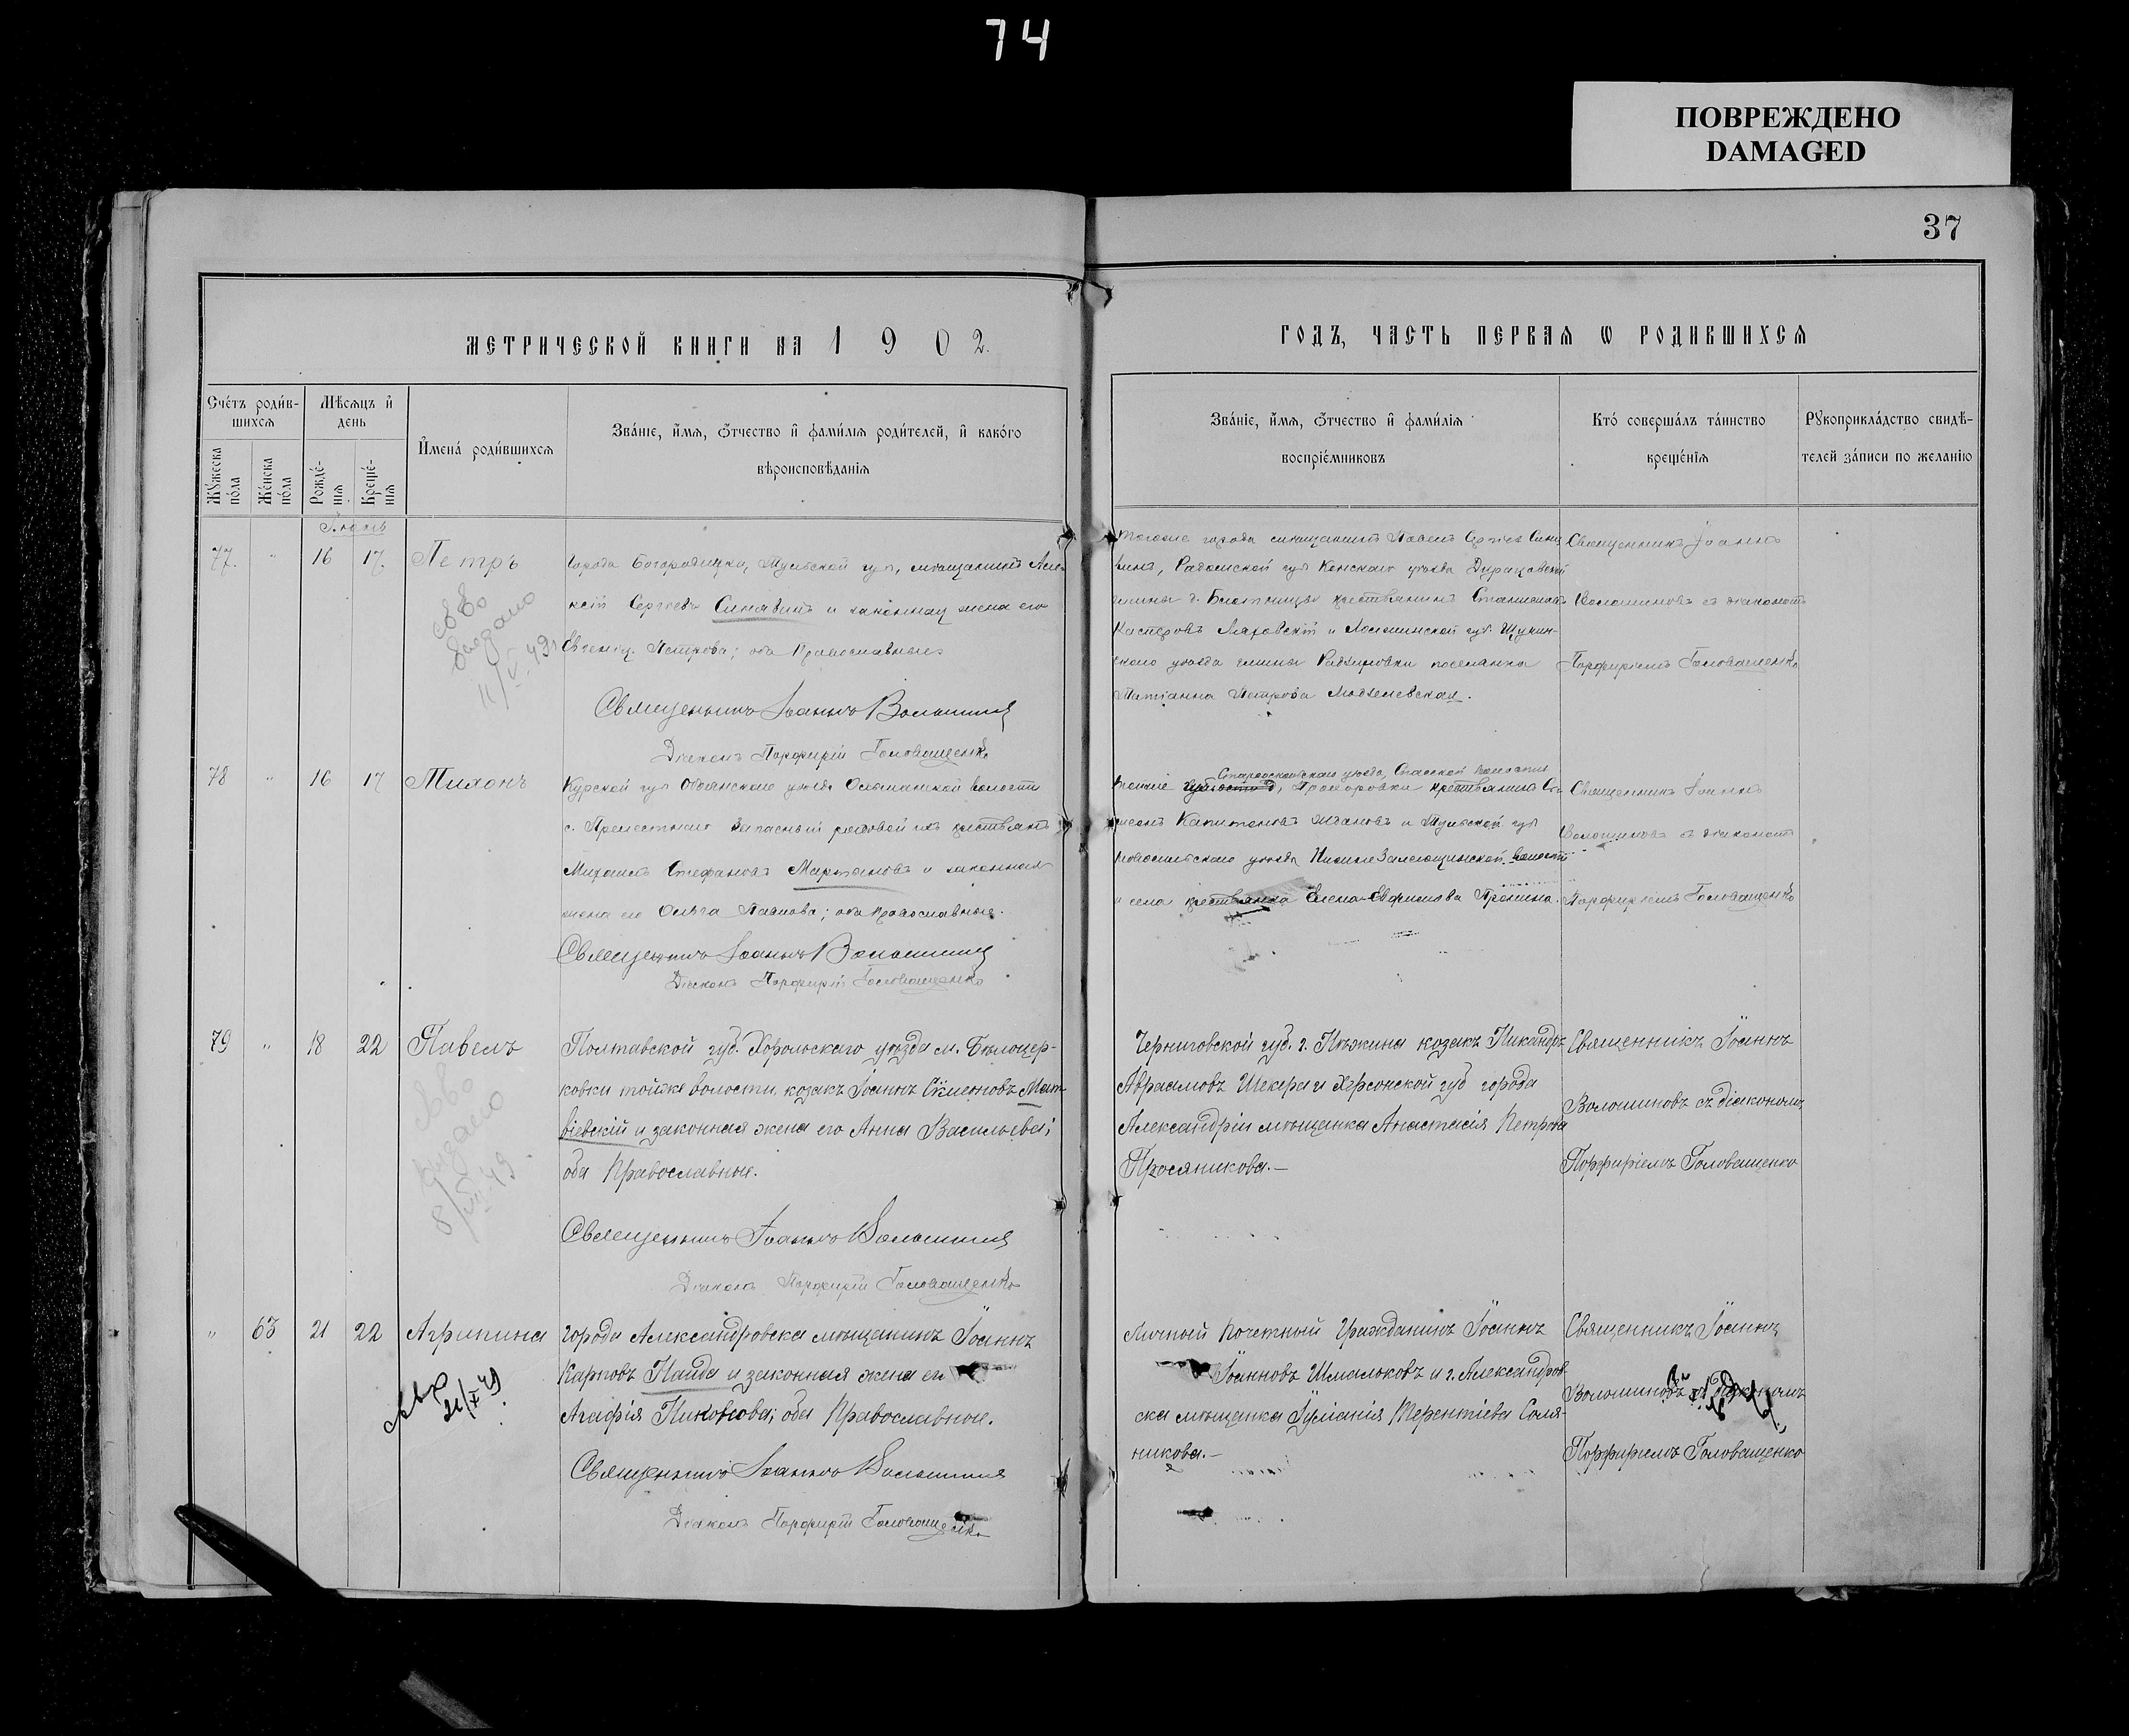 74
ПОВРЕЖДЕНО
DAMAGED
37
МЕТРИЧЕСКОЙ КНИГИ НА 1902.
ГОДЪ, ЧАСТЬ ПЕРВАЯ Ѡ РОДИВШИХСЯ
Счетъ родив-
шихся
Мужеска пола
Женска пола
Мѣсяцъ и
день
Рожде-
нія
Креще-
нія
Имена родившихся
Званіе, имя, отчество и фамилія родителей, и какого
вѣроисповѣданія
Званіе, имя, отчество и фамилія
воспріемниковъ
Кто совершалъ таинство
крещенія
Рукоприкладство свидѣ-
телей записи по желанію
77. " 16 17. Петръ
города Богородицка, Тульской губ, мѣщанинъ Алек-
сѣй Сергѣевъ Синявинъ и законная жена его
Евгенія Петрова; оба Православные
Священникъ Іоаннъ Волошинъ
Діаконъ Порфирій Головащенко
выдано
тогоже города мѣщанинъ Павелъ Сергѣевъ Синя-
винъ, Радомской губ Конскаго уѣзда
крестьянинъ Станиславъ
Касперовъ и Ломжинской губ. Щучин-
скаго уѣзда гмины поселянка
Татіанна Петрова
Священникъ Іоаннъ
Волошиновъ съ діакономъ
Порфиріемъ Головащенко
78 " 16 17 Тихонъ
Курской губ Обоянскаго уѣзда волости
с. Прелестнаго запасный рядовой изъ крестьянъ
Михаилъ Стефановъ Мартановъ и законная
жена его Ольга Павлова; оба православные.
Священникъ Іоаннъ Волошинъ
Діаконъ Порфирій Головащенко
Старооскольскаго уѣзда, Спасской волости
Прохоровки крестьянинъ
Капитоновъ и Тульской губ
Новосильскаго уѣзда волости
и села крестьянка Елена Евфимова Пронина.
Священникъ Іоаннъ
Волошиновъ съ діакономъ
Порфиріемъ Головащенко
79 " 18 22 Павелъ
Полтавской губ. Хорольскаго уѣзда м. Бѣлоцер-
ковки тойже волости, козакъ Іоаннъ Симеоновъ Мат-
віевскій и законная жена его Анна Васильева;
оба Православные.
Священникъ Іоаннъ Волошинъ
Діаконъ Порфирій Головащенко
выдано
Черниговской губ. г. Нѣжина козакъ Никандръ
Авраамовъ Шекера и Херсонской губ города
Александріи мѣщанка Анастасія Петрова
Просяникова.—
Священникъ Іоаннъ
Волошиновъ съ діакономъ
Порфиріемъ Головащенко
" 63 21 22 Агрипина
города Александровска мѣщанинъ Іоаннъ
Карповъ Пайда и законная жена его
Агафія; оба Православные.
Священникъ Іоаннъ Волошинъ
Діаконъ Порфирій Головащенко
Личный почетный Гражданинъ Іоаннъ
Іоанновъ Шмальковъ и г. Александров-
ска мѣщанка Іуліанія Терентіева Соля-
никова.—
Священникъ Іоаннъ
Волошиновъ съ діакономъ
Порфиріемъ Головащенко